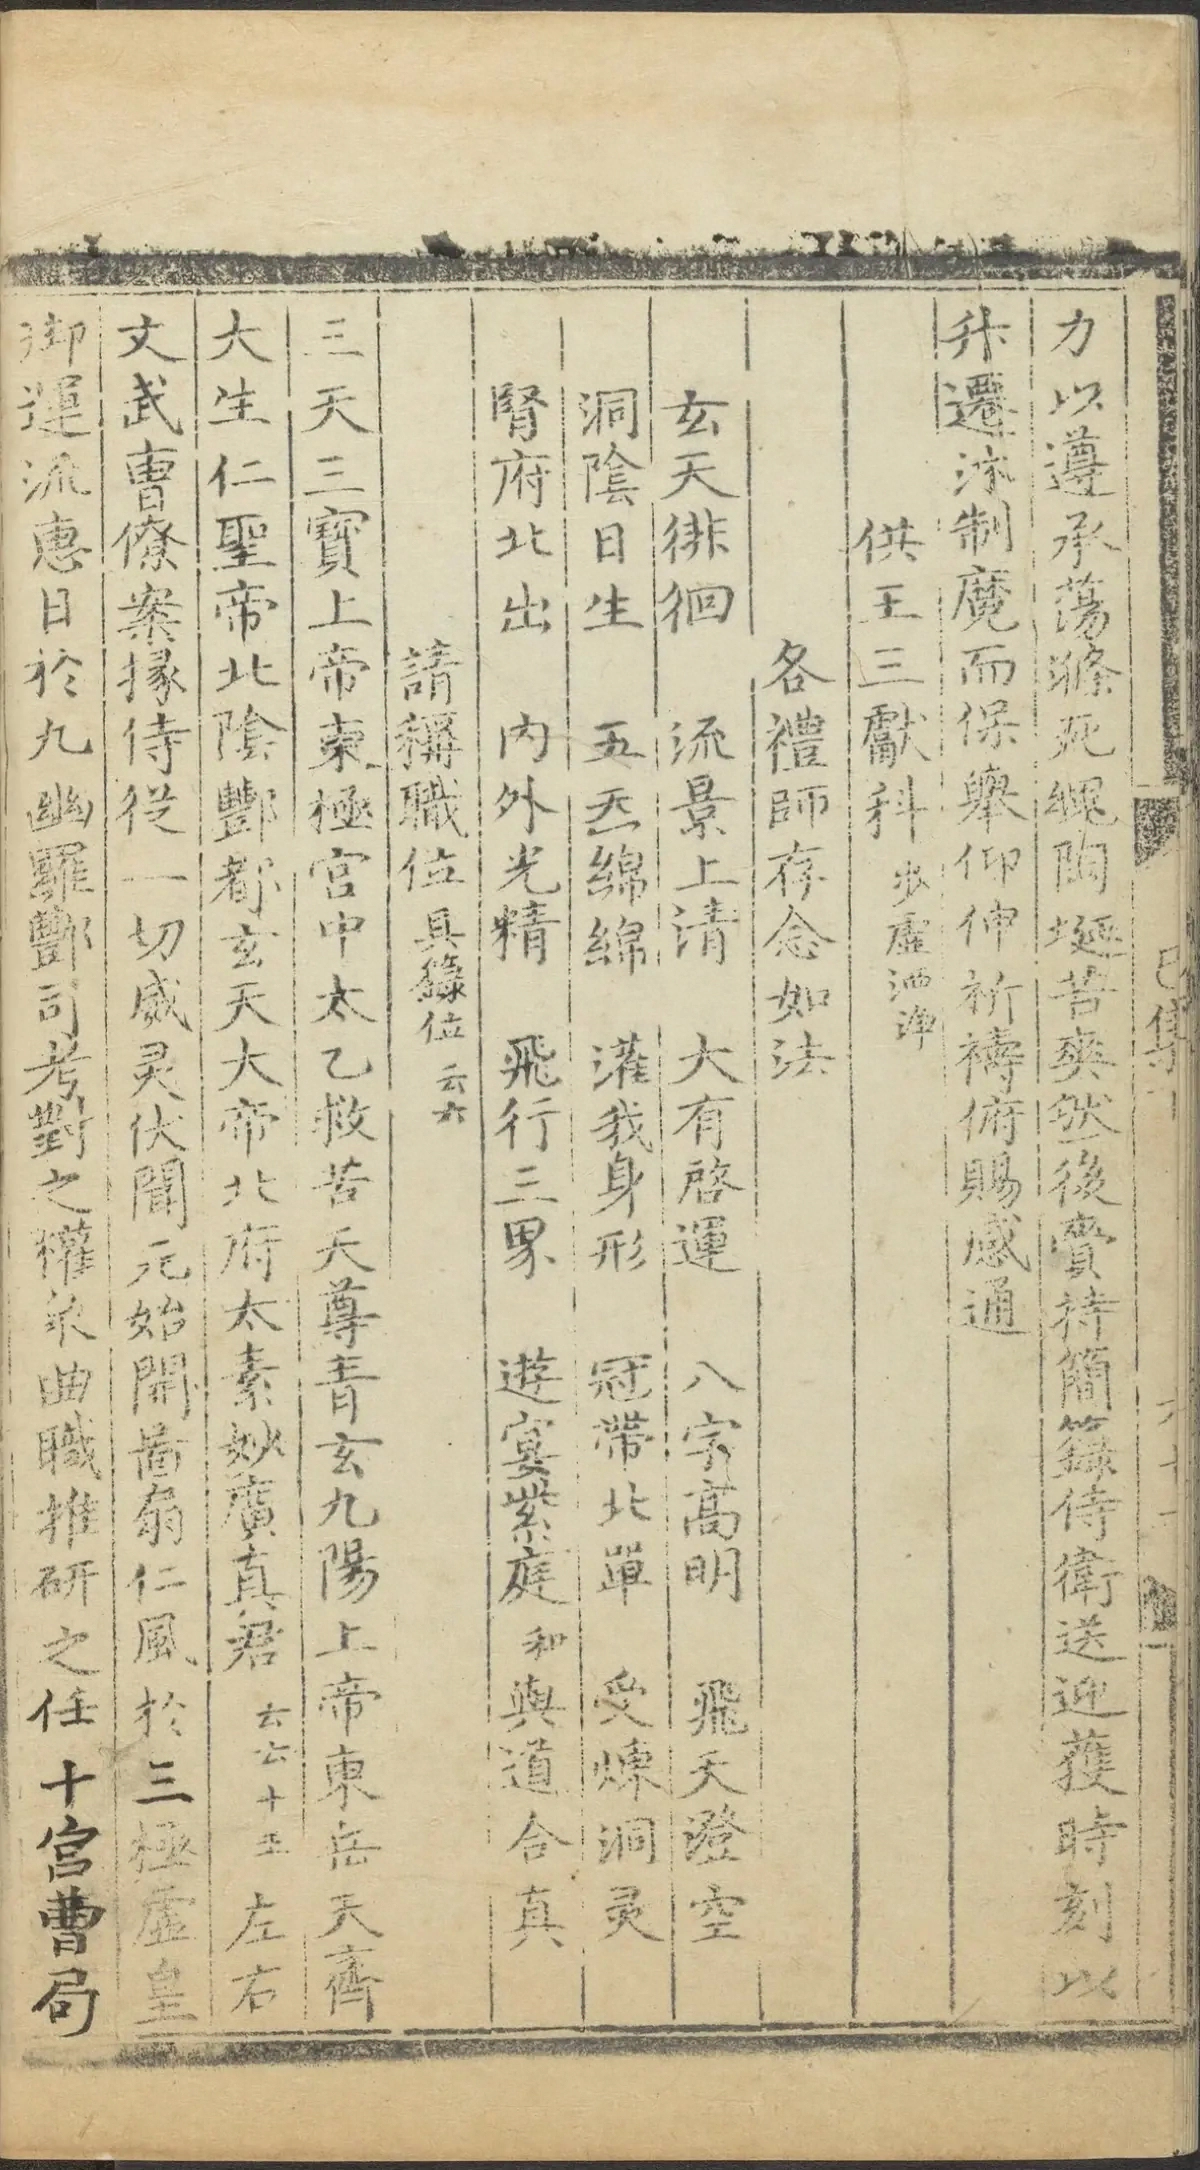 力以遵承蕩滌死魂陶埏苦爽然後賫持簡籙侍衛送迎獲時刻以
升遷沵制魔而保舉仰伸祈禱俯賜感通
供王三獻科 步虛洒淨
各禮師存念如法
玄天徘徊 流景上清 大有啓運 八字高明 飛天澄空
洞陰日生 五炁綿綿 灌我身形 冠帶北單 受煉洞灵
腎府北出 內外光精 飛行三界 遊宴紫庭 和與道合真
請稱職位 具籙位 云六
三天三寶上帝東極宮中太乙救苦天尊青玄九陽上帝東岳天齊
大生仁聖帝北陰酆都玄天大帝北府太素妙廣真君 云云十王 左右
文武曹僚案掾侍従一切威灵伏聞元始開啚扇仁風於三極虛皇
御運流惠日於九幽羅酆司考對之權泉曲職推研之任十宮曹局
巳集